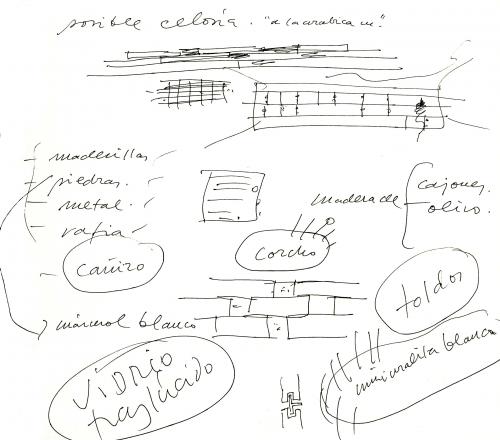 posible celosía. "a la arabica
maderillas
piedras.
metal.
rafia
cañizo
madera de
cajones
olivo.
corcho
toldos
mármol blanco
vidrio
traslúcido
miniuralita blanca